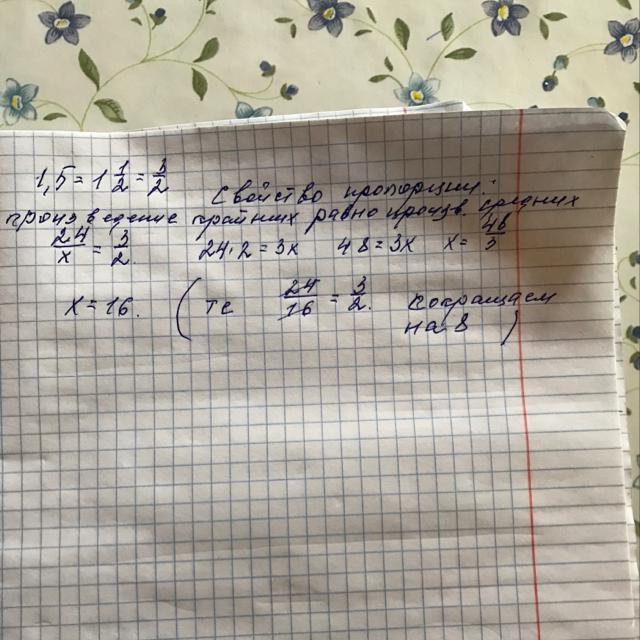 1,5 = 1 1/2 = 3/2
Свойство пропорции:
произведение крайних равно произв. средних
24/x = 3/2   24·2 = 3x   48 = 3x   x = 48/3
x = 16. (те 24/16 = 3/2. сокращаем
на 8)